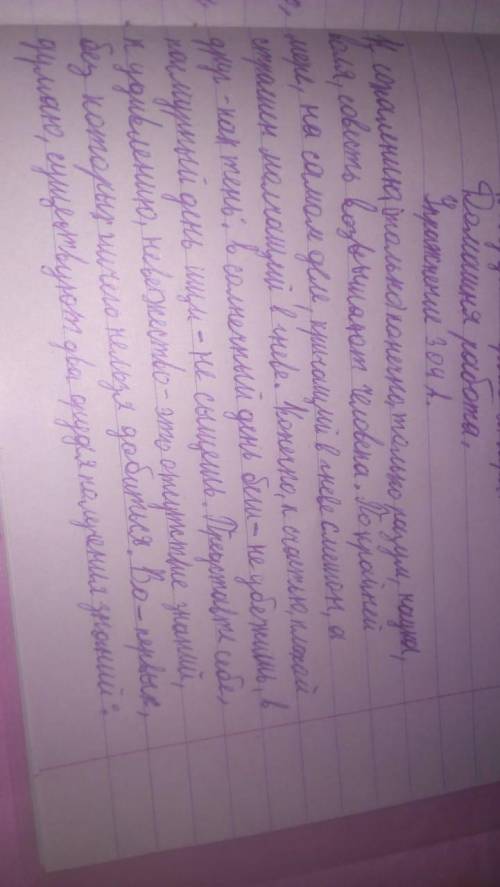 Домашня работа.
Упражнение 304 А.
К сожалению, только конечно, только разум, наука,
воля, совесть возвышают человека. По крайней
мере, на самом деле, кричащий в гневе смешон, а
страшен молчащий в гневе. Конечно, к счастью, плохой
друг - как тень: в солнечный день беги - не убежишь, в
пасмурный день ищи - не сыщешь. Представьте себе,
к удивлению, невежество - это отсутствие знаний,
без которых ничего нельзя добиться. Во-первых,
думаю, существуют два орудия получения знаний: